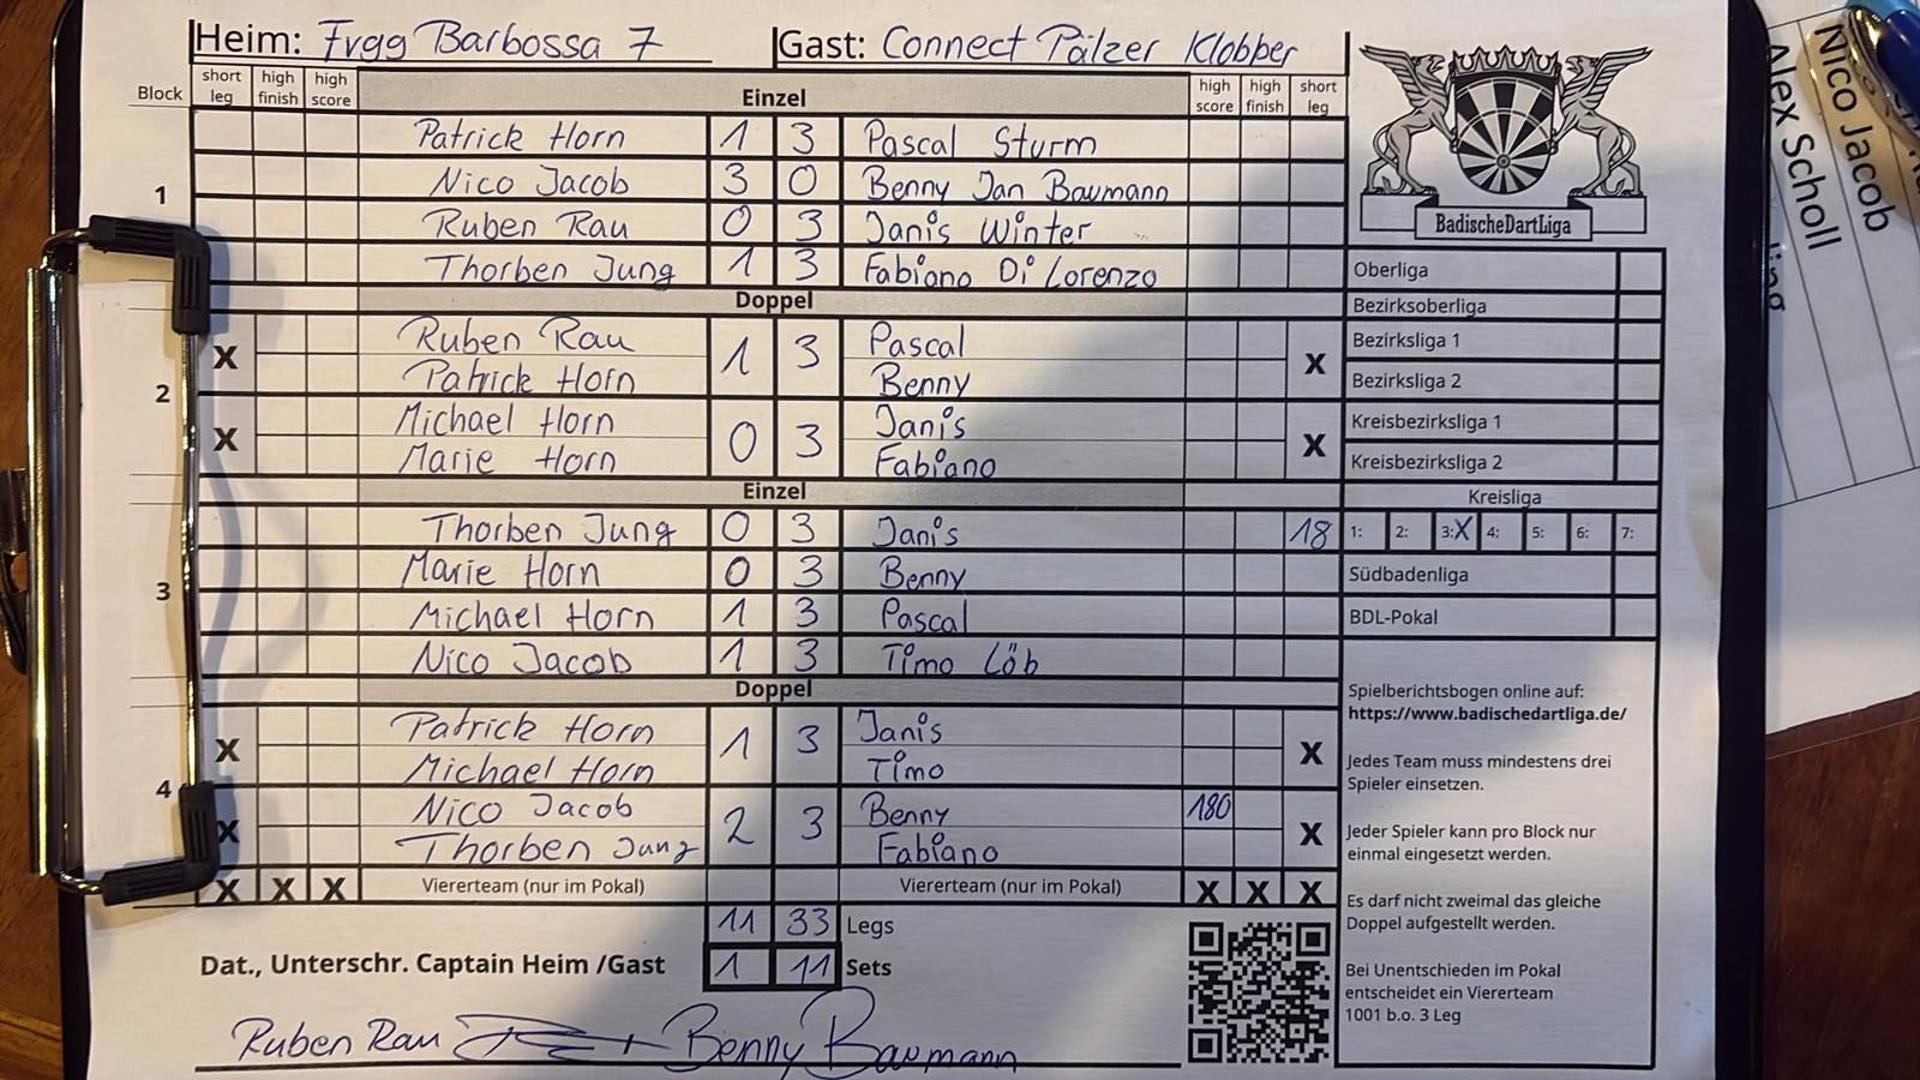 Heim: Frgg Barbossa 7 Gast: Connect Pälzer Klobber
Block short leg high finish high score Einzel high score high finish short leg
1
Patrick Horn 1 3 Pascal Sturm
Nico Jacob 3 0 Benny Jan Baumann
Ruben Rau 0 3 Janis Winter
Thorben Jung 1 3 Fabiano Di Lorenzo
Doppel
2
X Ruben Rau 1 3 Pascal X
Patrick Horn Benny
X Michael Horn 0 3 Janis X
Marie Horn Fabiano
Einzel
3
Thorben Jung 0 3 Janis 18
Marie Horn 0 3 Benny
Michael Horn 1 3 Pascal
Nico Jacob 1 3 Timo Löb
Doppel
4
X Patrick Horn 1 3 Janis X
Michael Horn Timo
X Nico Jacob 2 3 Benny 180 X
Thorben Jung Fabiano
X X X Viererteam (nur im Pokal) Viererteam (nur im Pokal) X X X
11 33 Legs
Dat., Unterschr. Captain Heim /Gast 1 11 Sets
Ruben Rau Benny Baumann
BadischeDartLiga
Oberliga
Bezirksoberliga
Bezirksliga 1
Bezirksliga 2
Kreisbezirksliga 1
Kreisbezirksliga 2
Kreisliga
1: 2: 3:X 4: 5: 6: 7:
Südbadenliga
BDL-Pokal
Spielberichtsbogen online auf:
https://www.badischedartliga.de/
Jedes Team muss mindestens drei
Spieler einsetzen.
Jeder Spieler kann pro Block nur
einmal eingesetzt werden.
Es darf nicht zweimal das gleiche
Doppel aufgestellt werden.
Bei Unentschieden im Pokal
entscheidet ein Viererteam
1001 b.o. 3 Leg
Nico Jacob
Alex Scholl